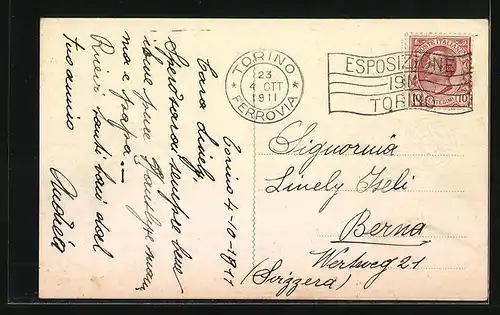 TORINO
23
4 OTT
1911
FERROVIA
ESPOSIZIONE
191
TORINO
POSTE ITALIANE
10
Torino 4-10-1911
Cara Linely
Spedirai sempre bene
come pure
ma e papa. —
Ricevi tanti baci dal
tuo amico
Andrea
Signorina
Linely Iseli
Berna
Wertweg 21
(Svizzera)